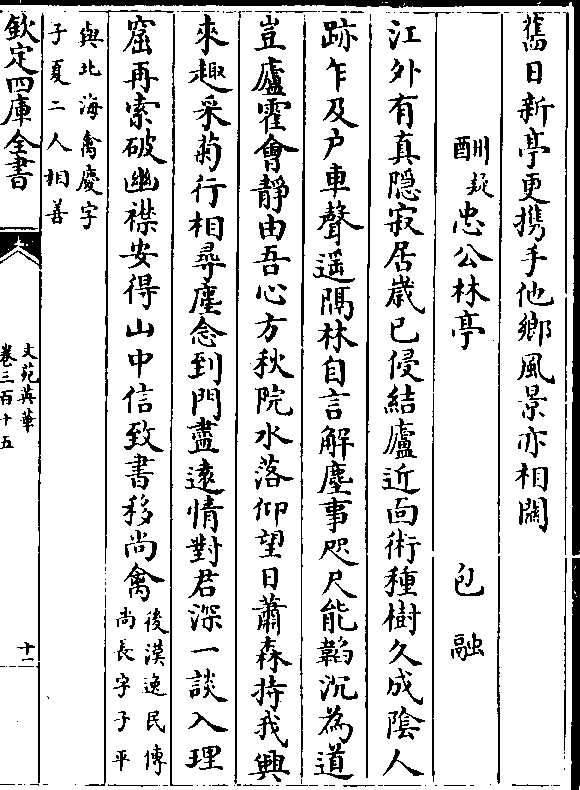 舊日新亭更携手他鄉風景亦相關
酬疑忠公林亭 包融
江外有真隠寂居歲已侵結廬近靣術種樹久成陰人
跡乍及户車聲遥隔林自言解塵事咫尺能韜沉為道
豈廬霍會靜由吾心方秋院水落仰望日蕭森持我興
來趣采菊行相尋塵念到門盡遠情對君深一談入理
窟再索破幽襟安得山中信致書移尚禽後漢逸民傳尚長字子平
與北海禽慶字子夏二人相善
欽定四庫全書
文苑英華
卷三百十五
十二